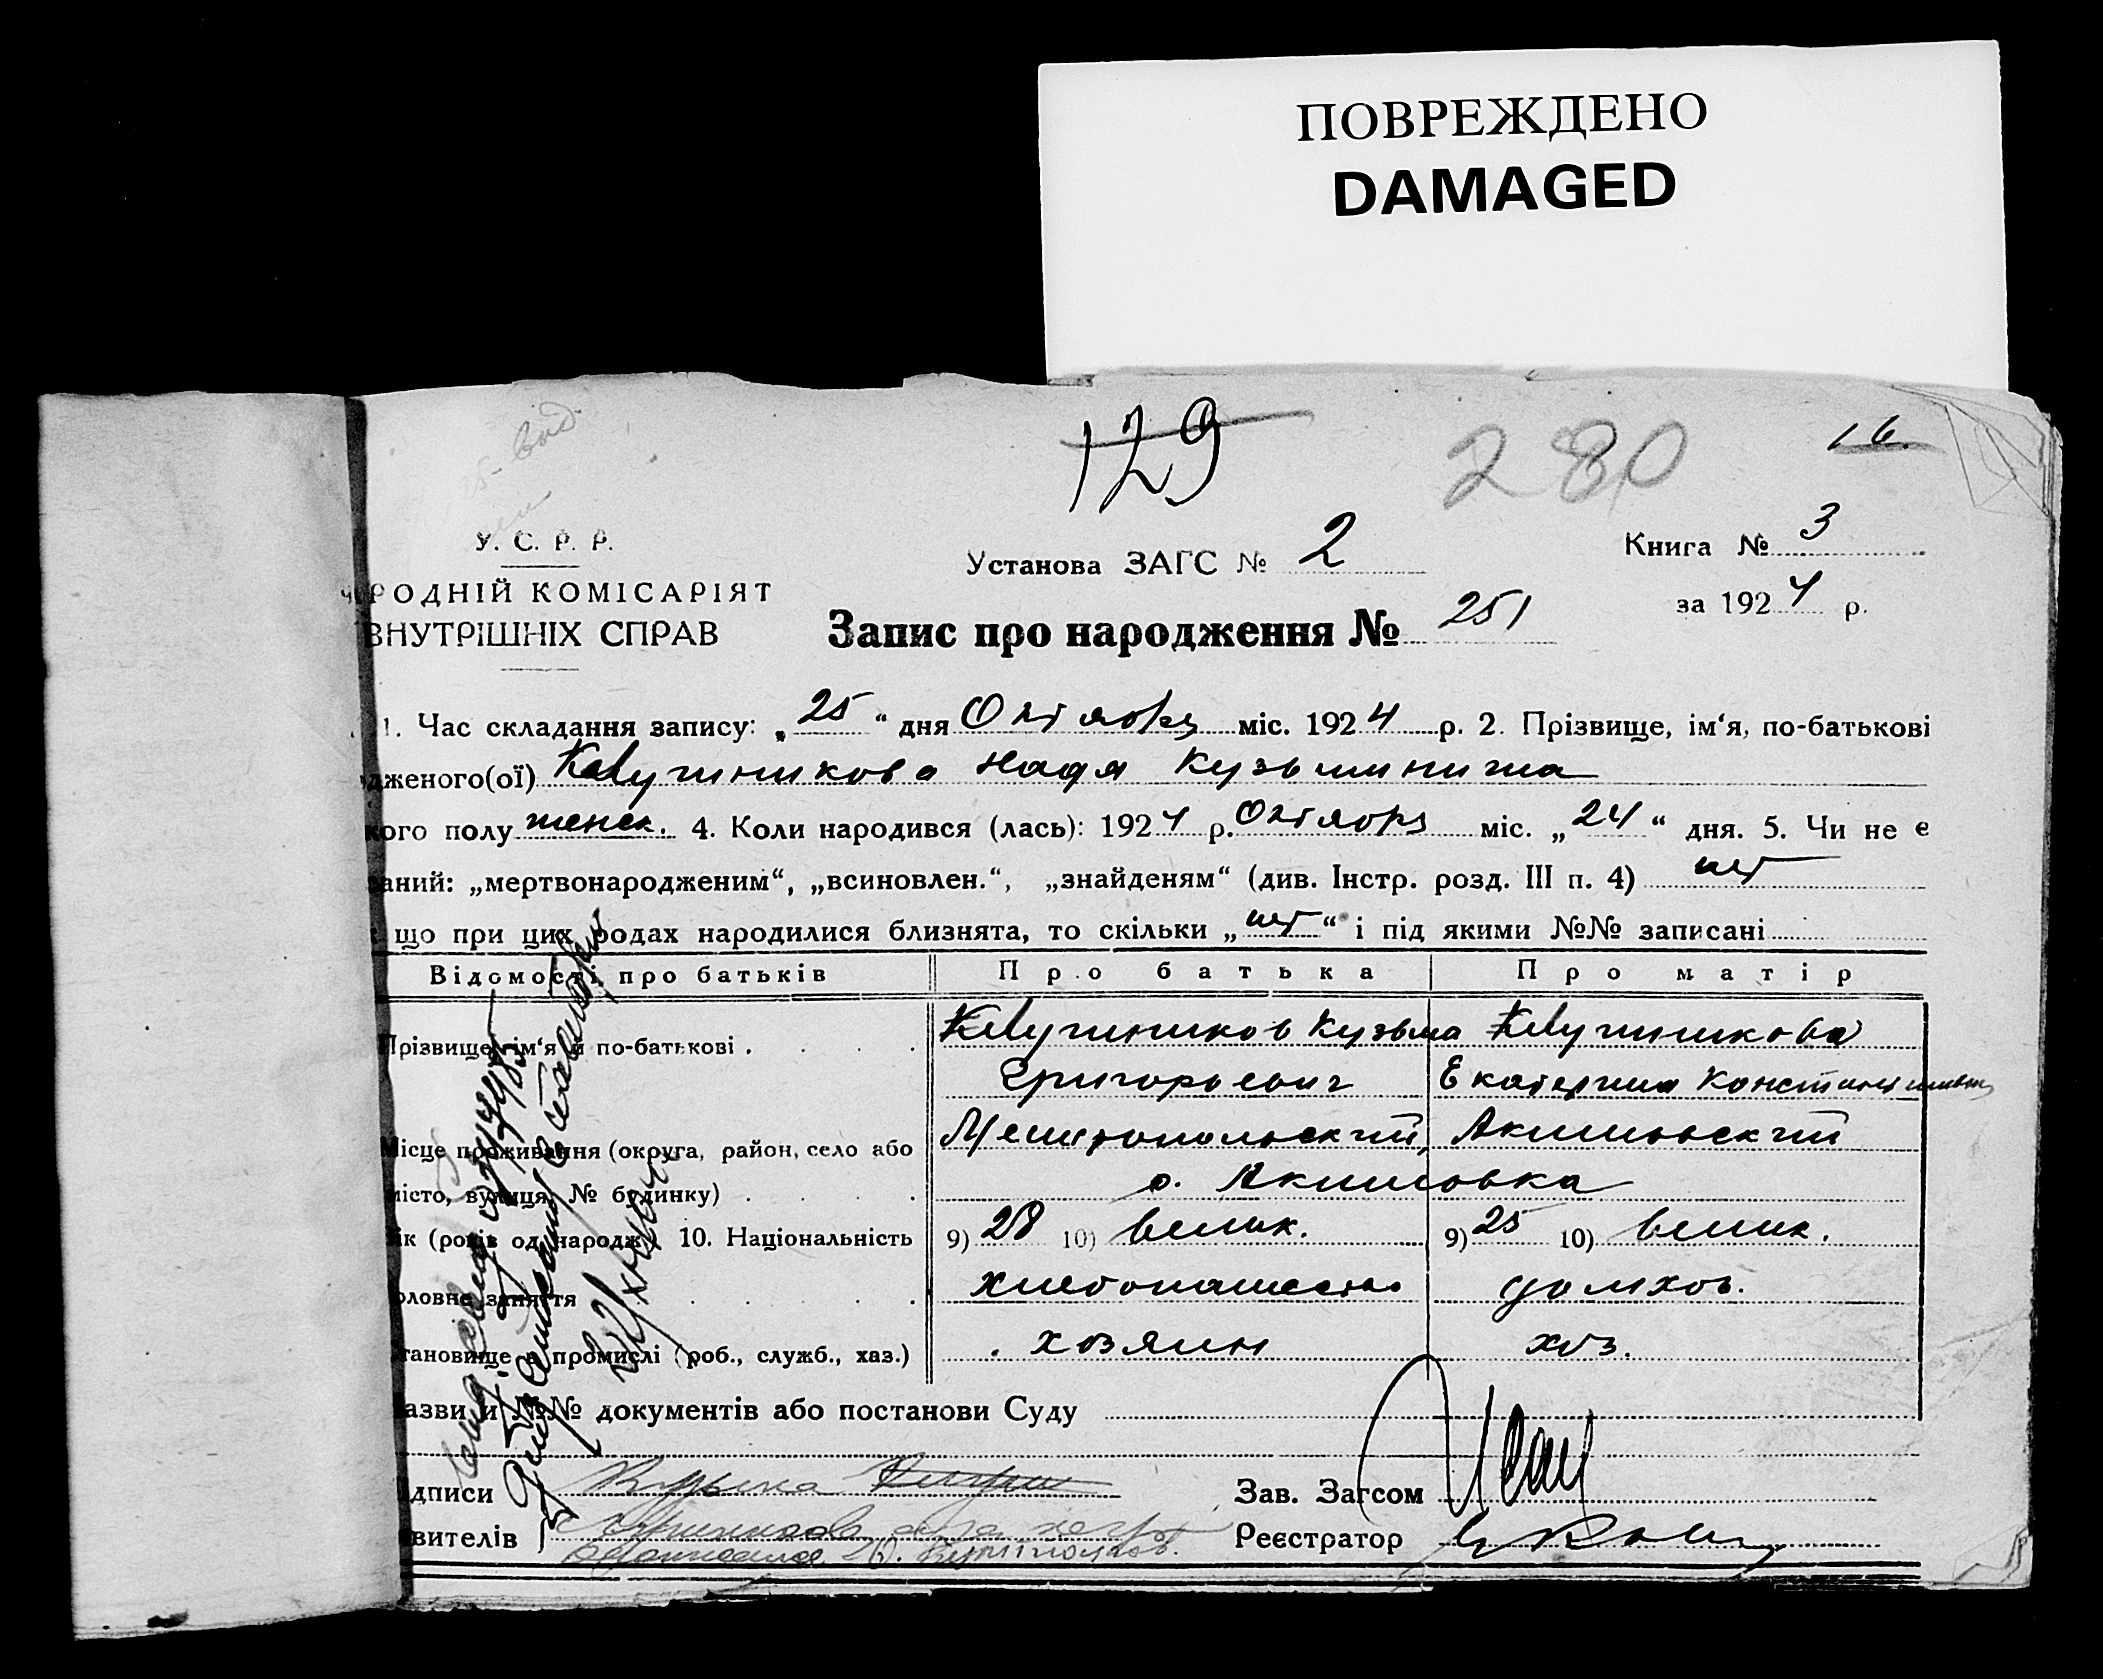 ПОВРЕЖДЕНО
DAMAGED
129
280
16.
У. С. Р. Р.
РОДНІЙ КОМІСАРІЯТ
ВНУТРІШНІХ СПРАВ
Установа ЗАГС № 2
Книга № 3
за 1924 р.
Запис про народження № 251
1. Час складання запису: „25“ дня Октября міс. 1924 р. 2. Прізвище, ім‘я, по-батькові
дженого(ої) Надя Кузьминична
кого полу женск. 4. Коли народився (лась): 1924 р. Октября міс. „24“ дня. 5. Чи не є
заний: „мертвонародженим“, „всиновлен.“, „знайденям“ (див. Інстр. розд. III п. 4) нет
що при цих родах народилися близнята, то скільки „нет“ і під якими №№ записані
Відомості про батьків Про батька Про матір
Прізвище, ім‘я й по-батькові . Кузьма
Григорьевич Екатерина
Місце проживання (округа, район, село або Мелитопольский, Акимовский
місто, вулиця, № будинку) . с. Акимовка
ік (років од народж.) 10. Національність 9) 28 10) велик. 9) 25 10) велик.
оловне заняття хлебопашество домхоз.
тановище в промислі (роб., служб., хаз.) хозяин хоз.
Назви и №№ документів або постанови Суду
ідписи Зав. Загсом
явителів Реєстратор